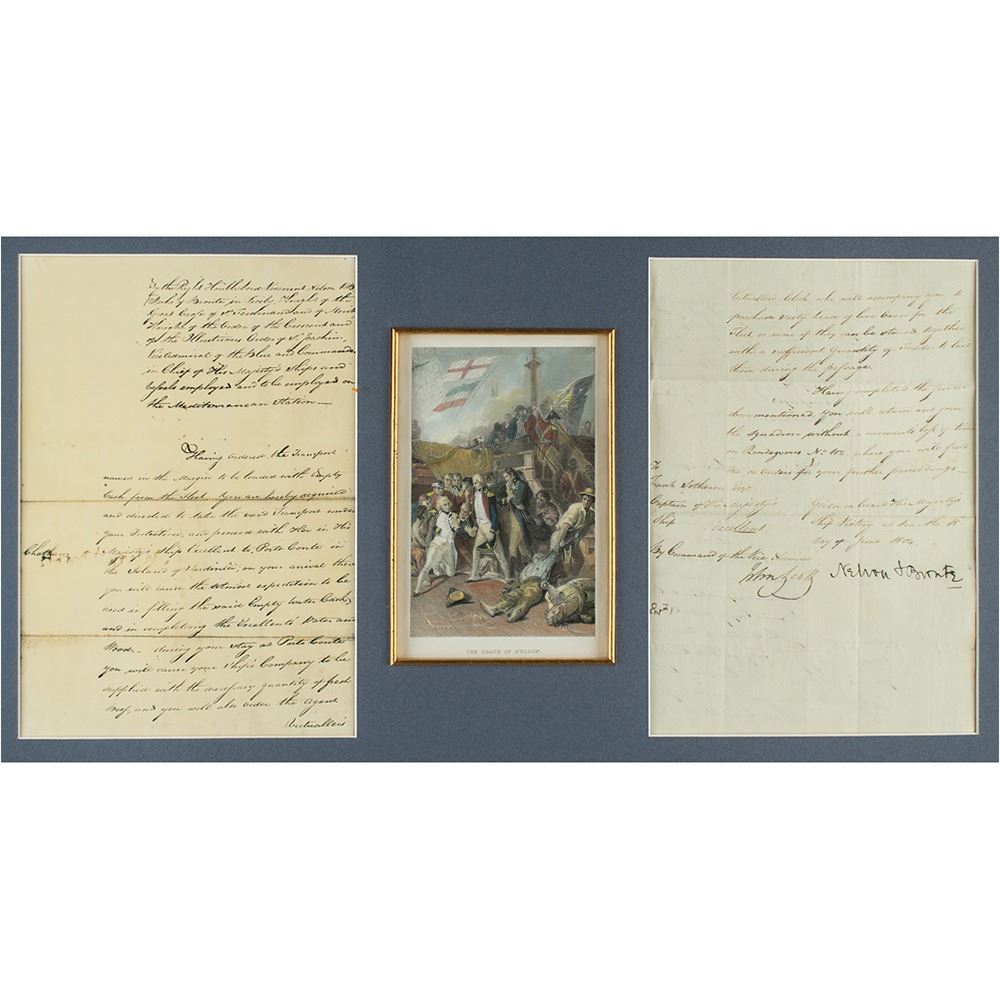 By the Right Honble Lord Viscount Nelson KB
Duke of Bronte in Sicily Knight of the
Great Cross of St Ferdinand and of Merit
Knight of the Order of the Crescent and
of the Illustrious Order of St Joachim
Vice Admiral of the Blue and Commander
in Chief of His Majesty's Ships and
Vessels employed and to be employed on
the Mediterranean Station —
Having ordered the Transport
named in the Margin to be loaded with Empty
Cask from the Fleet You are hereby required
and directed to take the said Transport under
your Protection, and proceed with Her in His
Majesty's Ship Excellent to Porto Conte in
the Island of Sardinia; on your arrival there
you will cause the utmost expedition to be
used in filling the said Empty Water Casks
and in completing the Excellents Water and
Wood. — during your Stay at Porto Conte
you will cause your Ship's Company to be
supplied with the necessary quantity of fresh
Beef, and you will also order the Agent
Victuallers
THE DEATH OF NELSON.
Victuallers Clerk who will accompany you to
purchase sixty head of live Oxen for the
Fleet or more if they can be stowed together
with a sufficient Quantity of Fodder to last
them during the passage.
Having completed the
abovementioned You will return and join
the Squadron without a moments loss of time
on Rendezvous No. 102 where you will find
me or orders for your further proceedings
To
Frank Sotheron Esqr
Captain of His Majestys
Ship Excellent
Given on board His Majestys
Ship Victory at Sea the
day of June 1804.
By Command of the Vice Admiral
John Scott
Nelson & Bronte